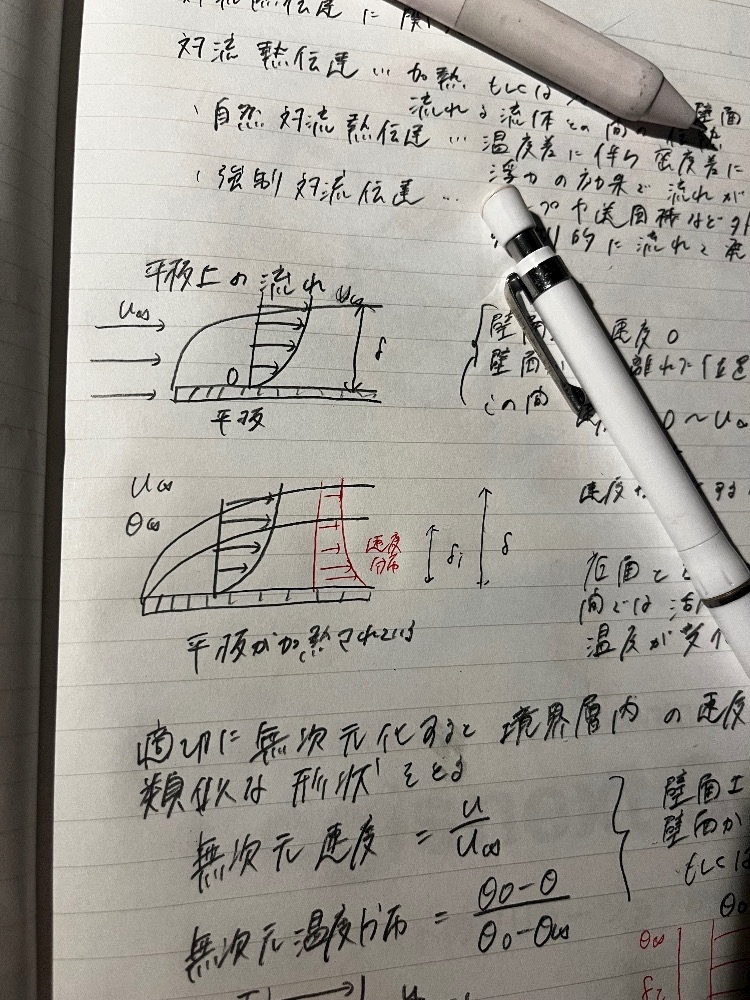 対流熱伝達に関
対流熱伝達 … 加熱 もしくは
流れる流体との間の伝熱 壁面
・自然対流熱伝達 … 温度差に伴う密度差に
浮力の効果で流れが
・強制対流伝達 …
や送風機など外
的に流れを発
平板上の流れ
U∞ U∞
0 δ
平板
壁面 速度 0
壁面 離れた位置
この間 0 〜 U∞
U∞
θ∞
速度
分布
δ
平板が加熱されている
間では
温度が
適切に無次元化すると境界層内の速度
類似な形状をとる
無次元速度 = u/U∞
無次元温度分布 = θ0-θ/θ0-θ∞
壁面上
壁面か
もしくは
θ0
θ∞